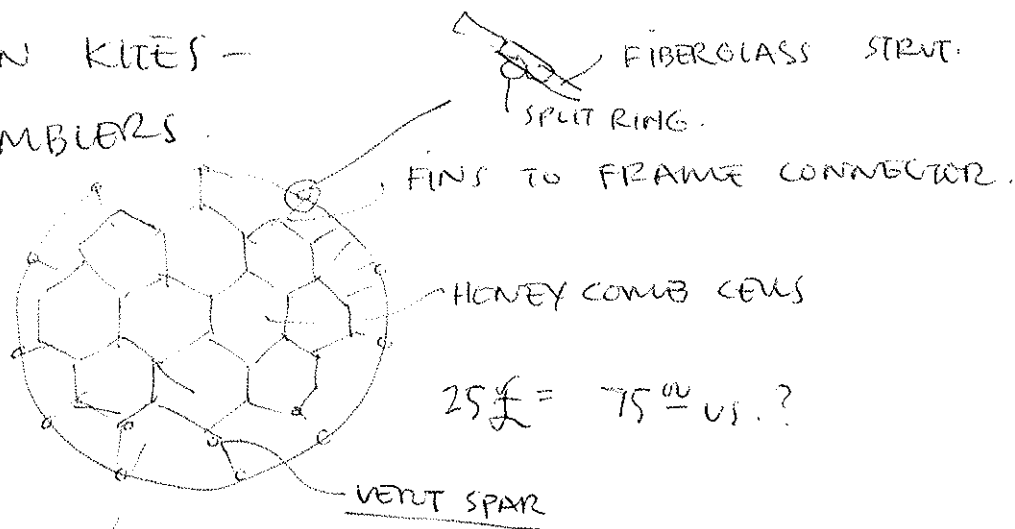 N KITES -
MBLERS.
FIBERGLASS STRUT.
SPLIT RING.
FINS TO FRAME CONNECTOR.
HONEY COMB CELLS
25£ = 75 00 US. ?
VERT SPAR